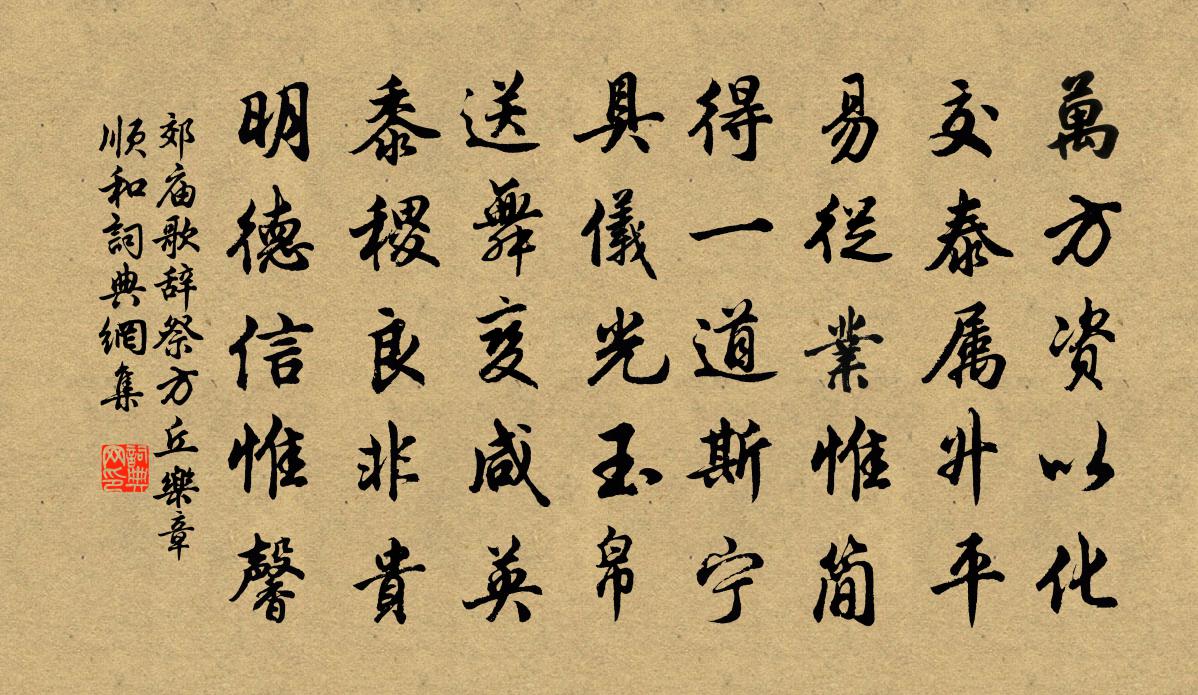 萬方资以化
交泰属升平
易從業惟简
得一道斯宁
具儀光玉帛
送舞变咸英
黍稷良非貴
明德信惟馨
郊庙歌辞祭方丘樂章
顺和詞典網集
詞典网印